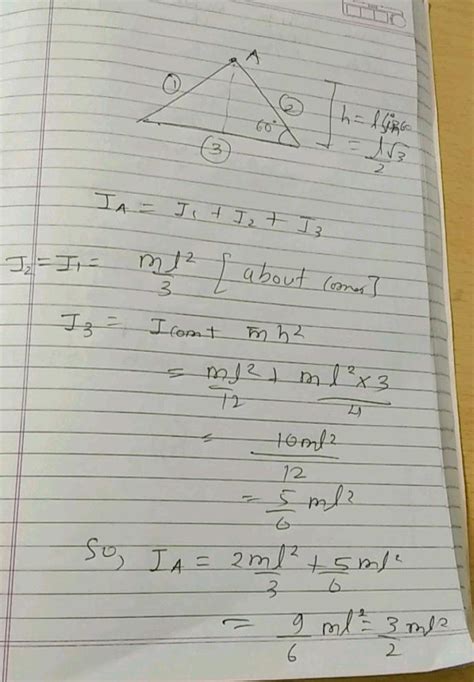 A
①
②
60°
③
h = l sin 60
= l√3/2
I_A = I₁ + I₂ + I₃
I₂ = I₁ = ml²/3 [about corner]
I₃ = I com + mh²
= ml²/12 + ml²×3/4
= 10ml²/12
= 5/6 ml²
So, I_A = 2ml²/3 + 5/6 ml²
= 9/6 ml² = 3/2 ml²